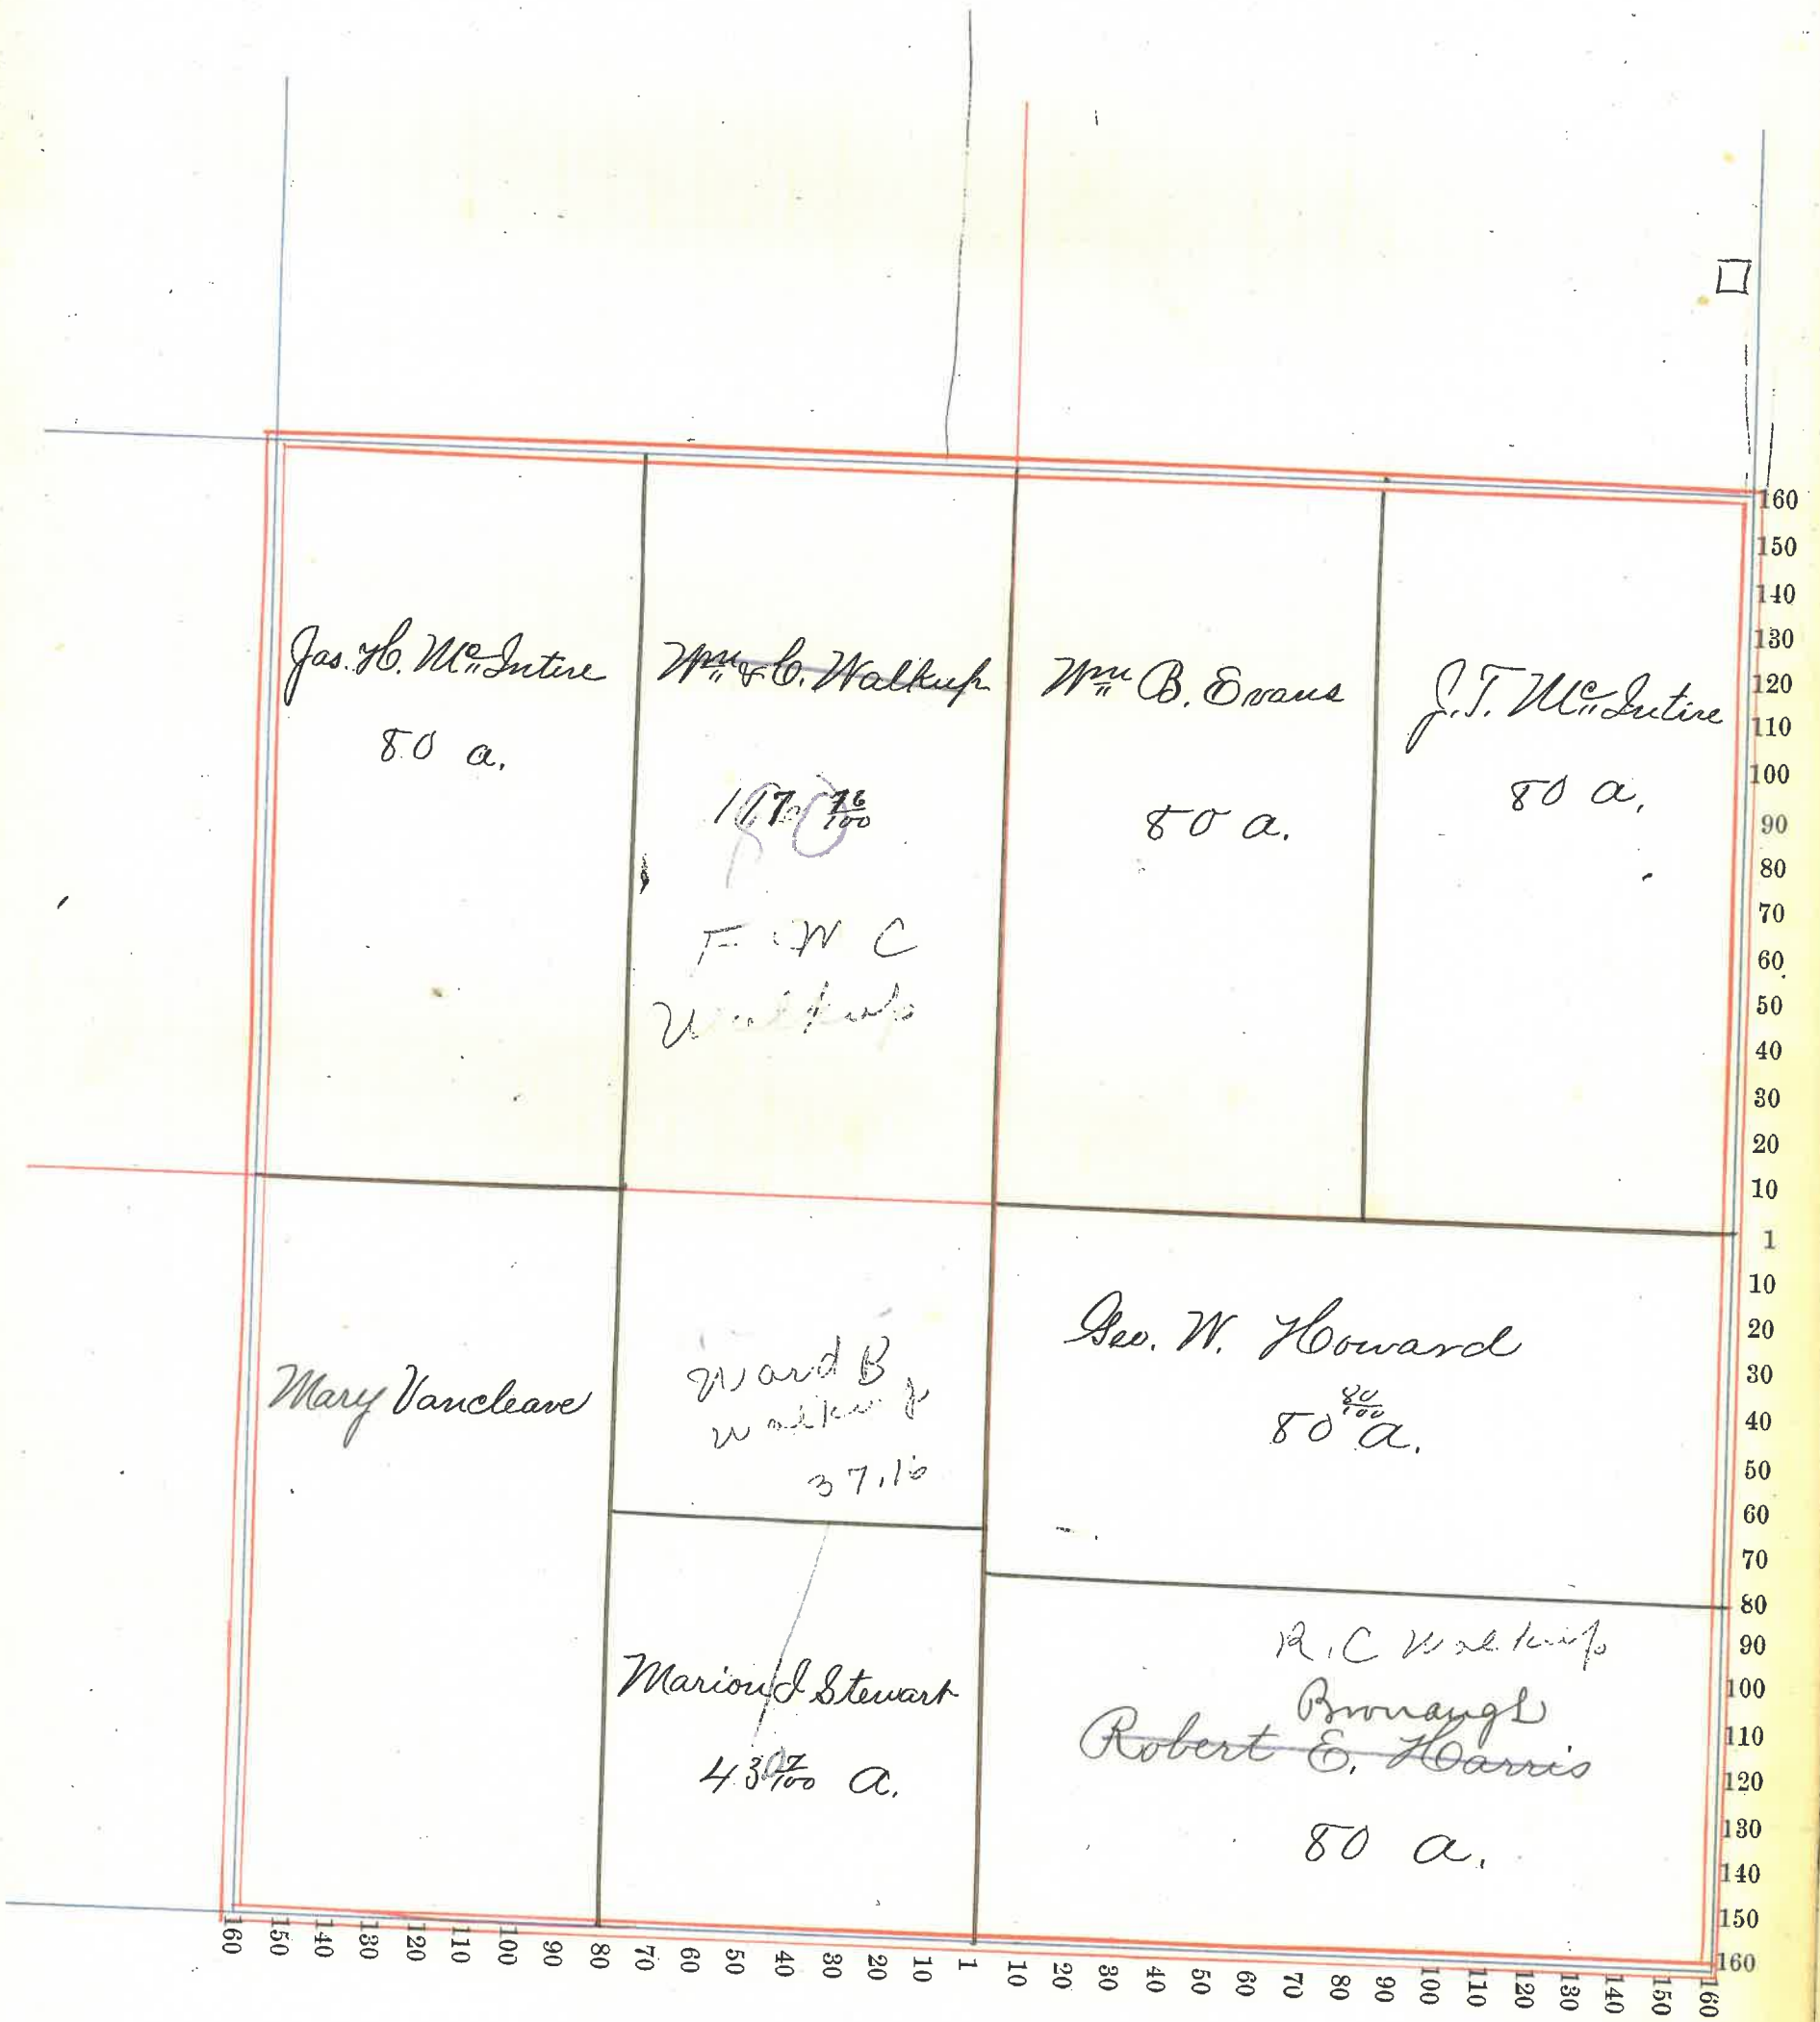 Jas. H. Mc Intire
80 a.
Wm & C. Walkup
117 76/100
80
F W C
Walkup
Wm B. Evans
80 a.
J. T. Mc Intire
80 a.
Mary Vancleave
Ward B
Walkup
37.16
Marion J Stewart
43 07/100 a.
Geo. W. Howard
80 80/100 a.
R. C Walkup
Bronaugh
Robert E. Harris
80 a.
160
150
140
130
120
110
100
90
80
70
60
50
40
30
20
10
1
10
20
30
40
50
60
70
80
90
100
110
120
130
140
150
160
160 150 140 130 120 110 100 90 80 70 60 50 40 30 20 10 1 10 20 30 40 50 60 70 80 90 100 110 120 130 140 150 160